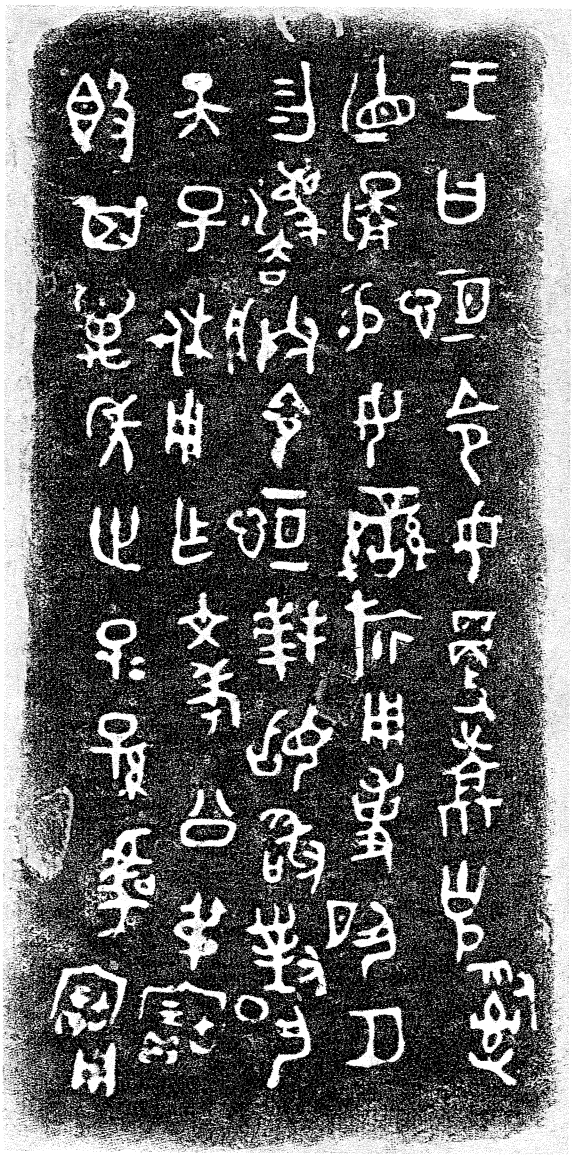 王曰恒令女更𧽙克𤔲
直啚易女䜌旂用事夙夕
勿灋朕令恒拜𩒨敢對揚
天子休用乍文考公叔寶
簋其萬年世子子孫虞寶用